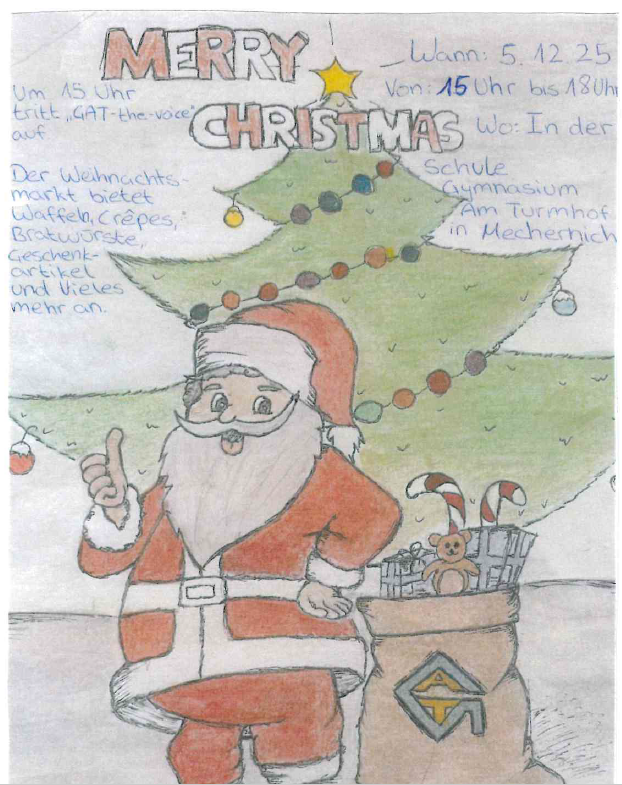 MERRY
CHRISTMAS
Wann: 5.12.25
Von: 15 Uhr bis 18 Uhr
Wo: In der
Schule
Gymnasium
Am Turmhof
in Mechernich
Um 15 Uhr
tritt „GAT-the-voice"
auf.
Der Weihnachts-
markt bietet
Waffeln, Crêpes,
Bratwürste,
Geschenk-
artikel
und Vieles
mehr an.
GAT